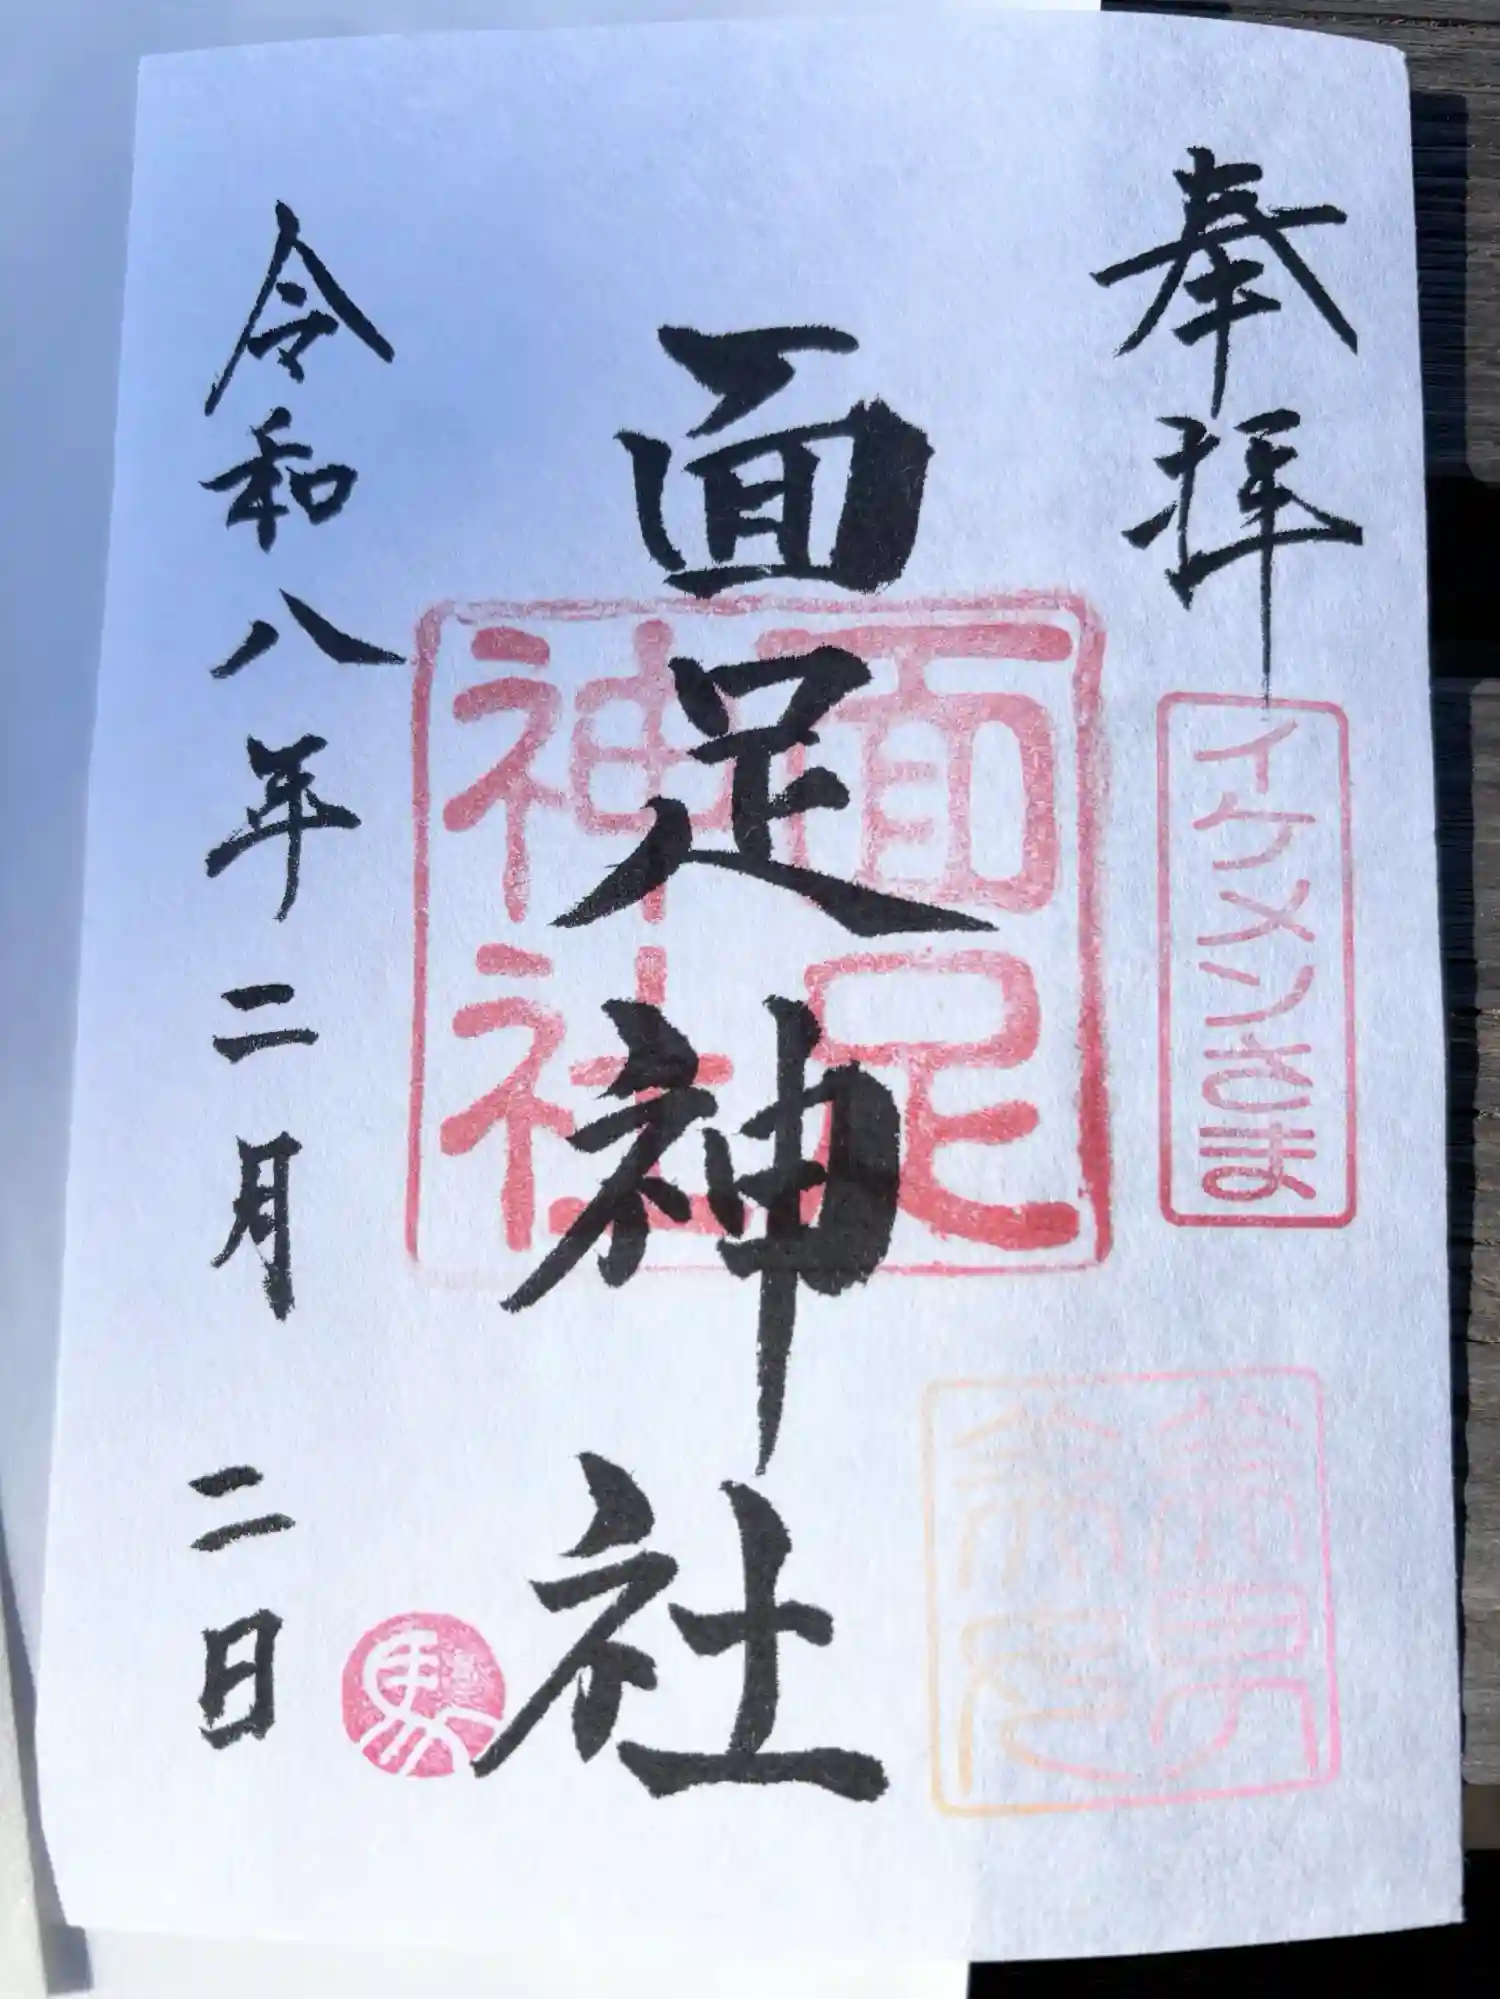 奉拝
イケメンそのまま
面足神社
面足
神社
令和八年二月二日
馬